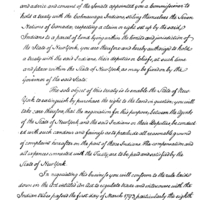 and advice and consent of the Senate appointed you a Commissioner to
hold a treaty with the Cohnawaga Indians, stiling themselves the Seven
Nations of Canada, respecting a claim or right set up by the said
Indians to a parcel of land lying within the limits and jurisdiction of
the State of New York, you are therefore and hereby authorized to hold
a treaty with the said Indians, their deputies or chiefs, at such time
and place within the State of New York, as may be fixed on by the
Governor of the said State.
The sole object of this treaty is to enable the State of
New York to extinguish by purchase the right to the land in question, you will
take care therefore that the negociation for this purpose, between the Agents
of the State of New York, and the said Indians or their deputies be conduct
ed with such candour and fairness as to preclude all reasonable ground
of complaint hereafter on the part of these Indians. The compensation and
all expenses connected with the Treaty are to be paid and satisfied by the
State of New York.
In negociating this business you will conform to the rules laid
down on the Act entitled an Act to regulate trade and intercourse with the
Indian tribes passed the first day of March 1793 particularly the eighth